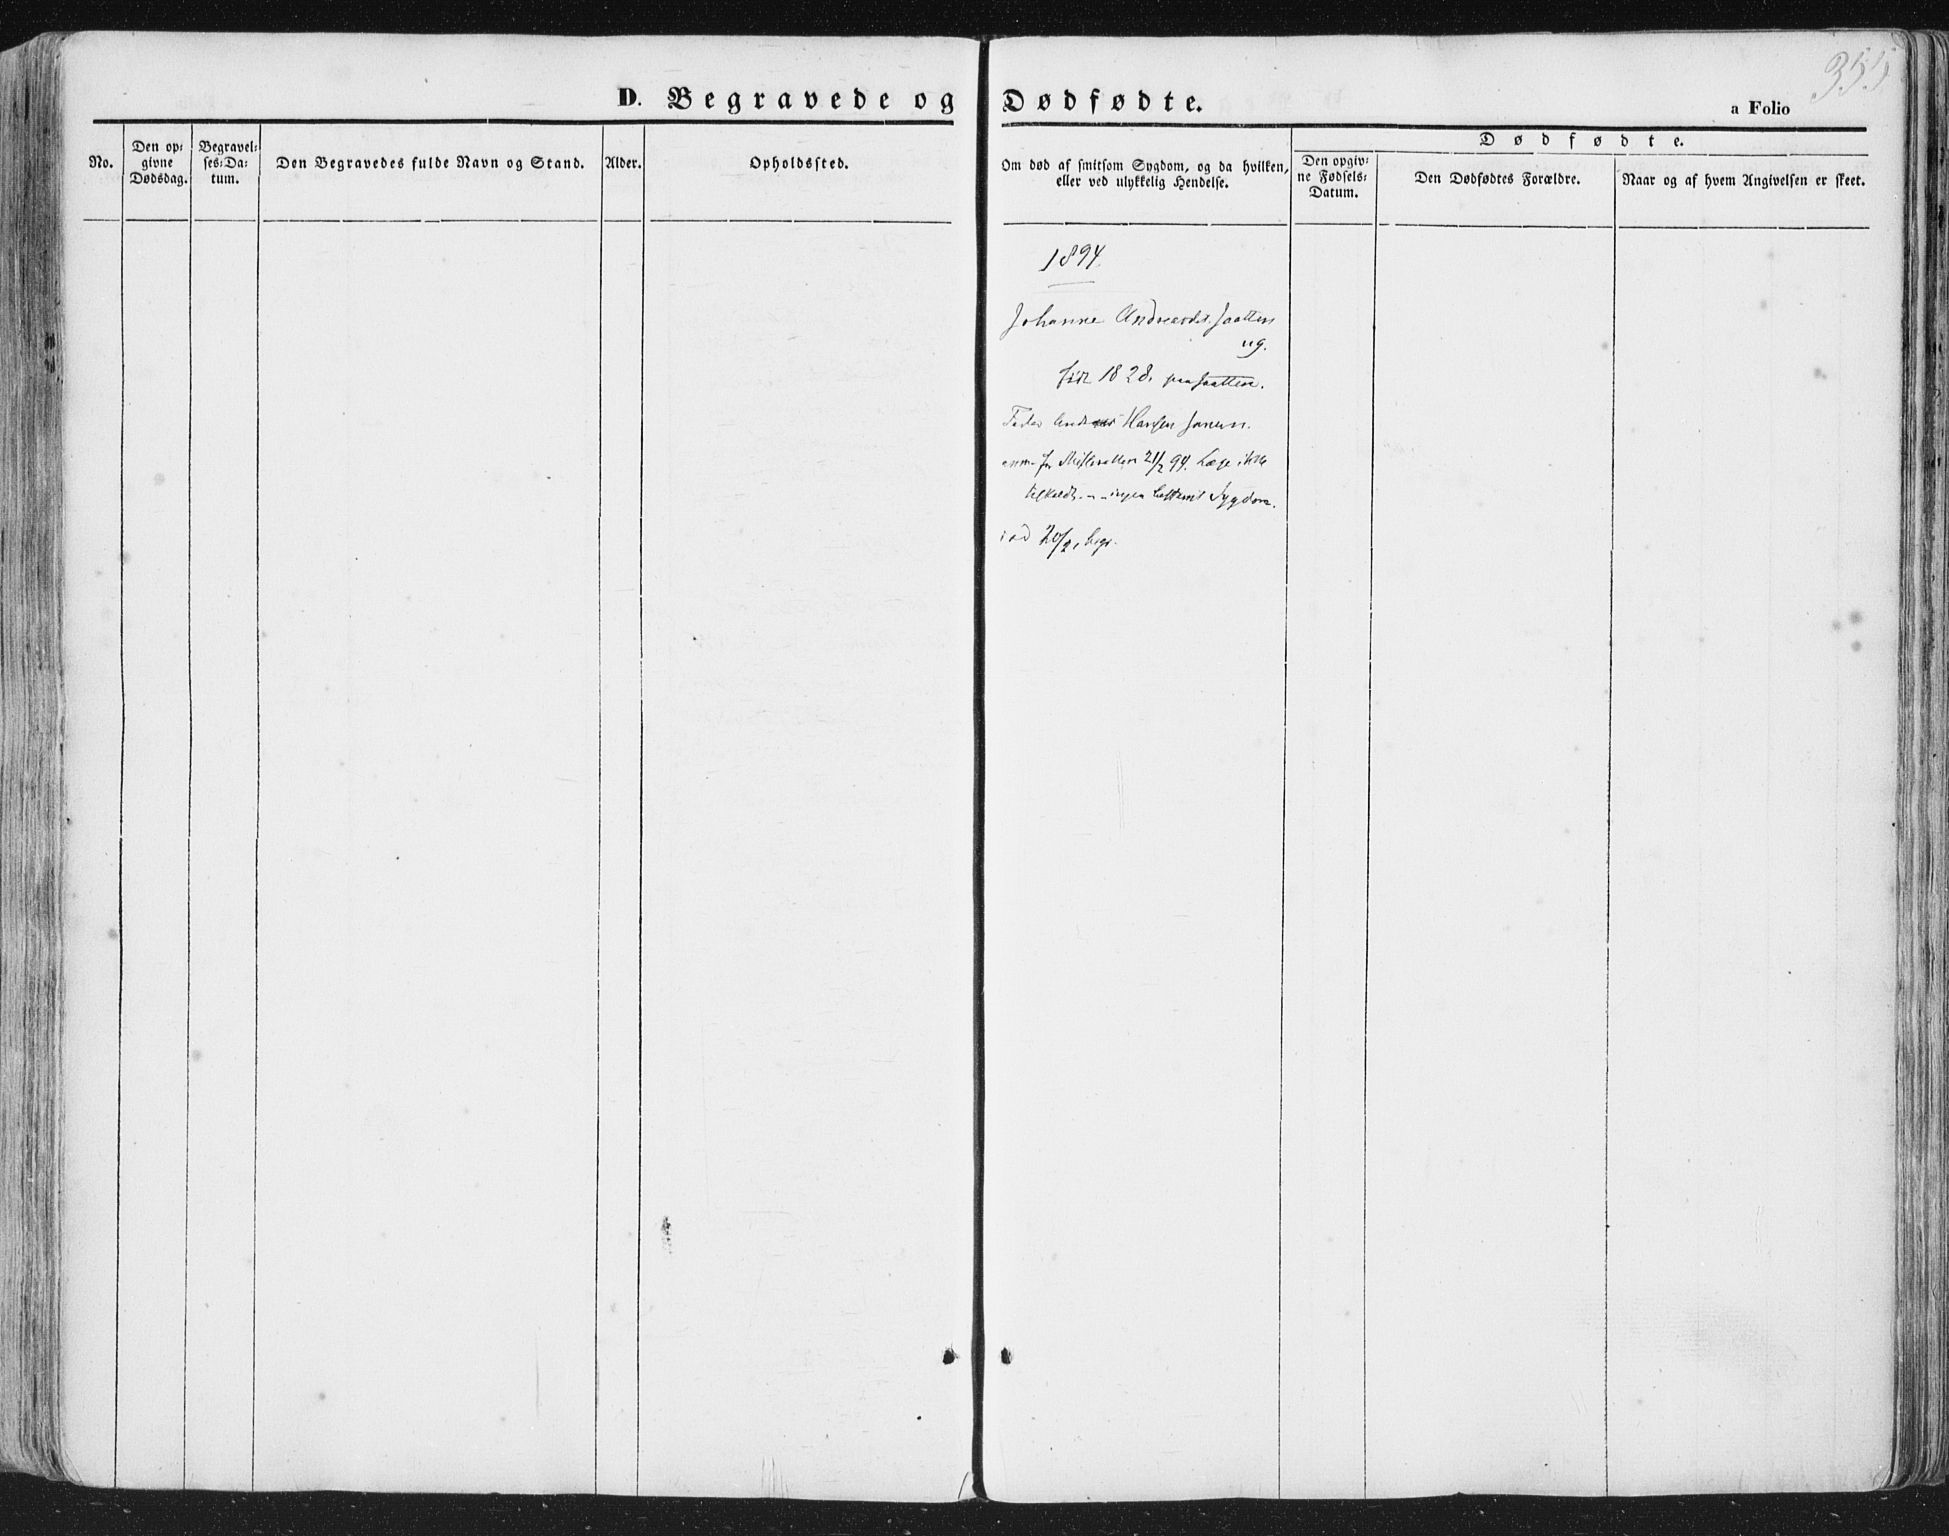 355
D. Begravede og Dødfødte.
a Folio
No.
Den op=
givne
Dødsdag.
Begravel=
ses=Da=
tum.
Den Begravedes fulde Navn og Stand.
Alder.
Opholdssted.
Om død af smitsom Sygdom, og da hvilken,
eller ved ulykkelig Hendelse.
Dødfødte.
Den opgiv=
ne Fødsels=
Datum.
Den Dødfødtes Forældre.
Naar og af hvem Angivelsen er skeet.
1894
Johanne Andreasdt. Saatten
ug.
født 1828 paa Saatten.
Fader Hansen
21/2 94. Læge ikke
tilkaldt. - ingen bestemt Sygdom.
20/2, begr.